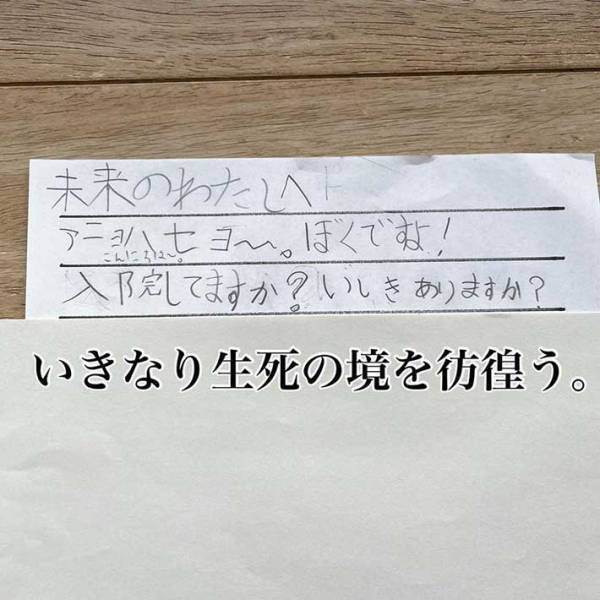 未来のわたしへ
アニョハセヨ〜。ぼくですよ!
こんにちは〜。
入院してますか?いしきありますか?
いきなり生死の境を彷徨う。